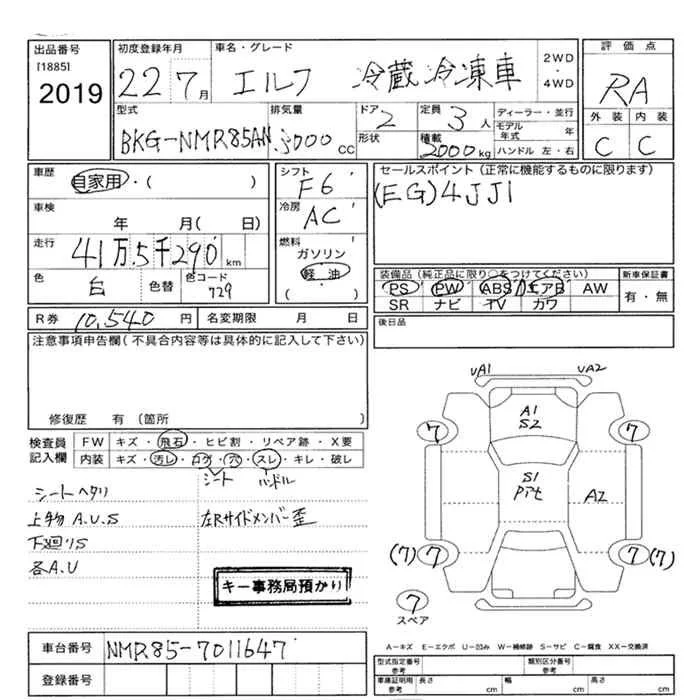 出品番号
[1885]
2019
初度登録年月
22 7月
車名・グレード
エルフ 冷蔵冷凍車
2WD・4WD
評価点
RA
外装 内装
C C
型式
BKG-NMR85AN
排気量
3000 CC
ドア
2
形状
定員
3人
積載
2000kg
ディーラー・並行
モデル年式 年
ハンドル 左・右
車歴
自家用・( )
車検
年 月( 日)
走行
41万5千290km
色
白 色替
色コード
729
シフト
F6
冷房
AC
燃料
ガソリン
軽油
( )
セールスポイント (正常に機能するものに限ります)
(EG)4JJ1
装備品(純正品に限り○をつけてください)
PS PW ABS エアB AW
SR ナビ TV カワ
新車保証書
有・無
R券 10,540円
名変期限 月 日
後日品
注意事項申告欄(不具合内容等は具体的に記入して下さい)
修復歴 有(箇所 )
検査員記入欄
FW キズ・飛石・ヒビ割・リペア跡・X要
内装 キズ・汚レ・コゲ・穴・スレ・キレ・破レ
シート ハンドル
シートヘタリ
上物A.U.S
左Rサイドメンバー歪
下廻りS
各A.U
キー事務局預かり
UA1 UA2
A1
S2
7 7
S1
Pit
A2
(7) 7 7 (7)
7
スペア
A－キズ E－エクボ U－凹み W－補修跡 S－サビ C－腐食 XX－交換済
車台番号
NMR85-7011647
登録番号
型式指定番号 参考
類別区分番号 参考
車庫証明用 参考
長さ cm 幅 cm 高さ cm